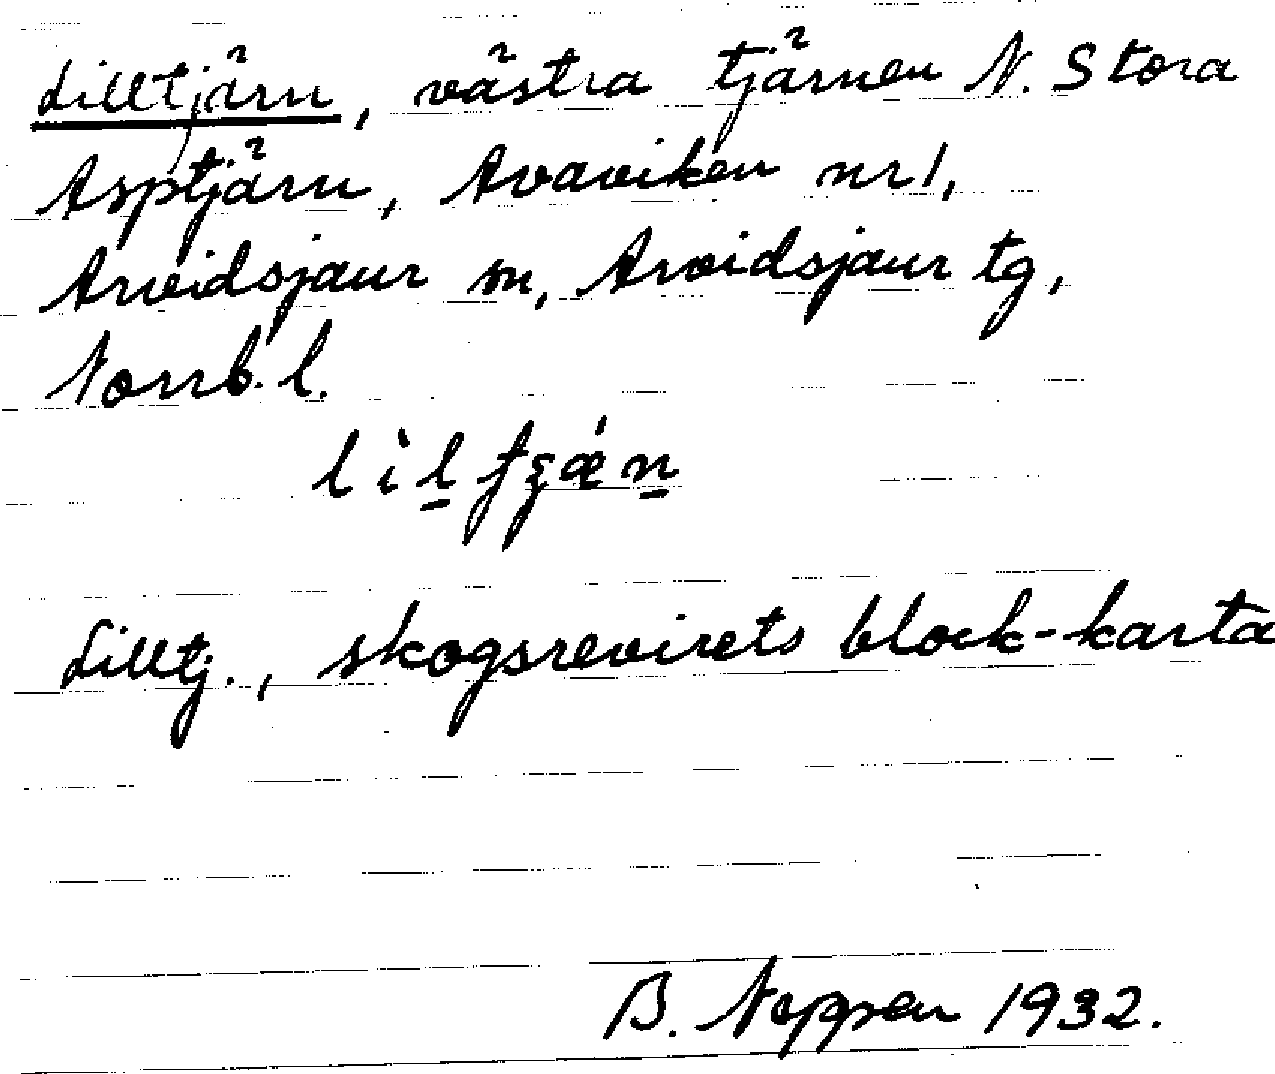 Lilltjärn, västra tjärnen N. Stora
Asptjärn, Avaviken nr 1,
Arvidsjaur sn, Arvidsjaur tg,
Norrb. l.
Lilltj., skogsrevirets block-karta
B. 1932.